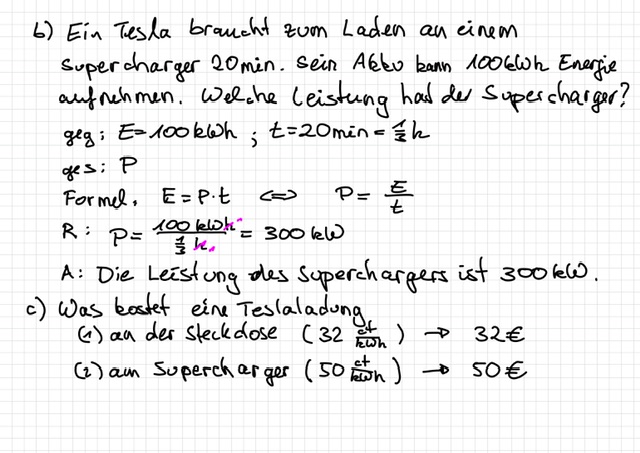 b) Ein Tesla braucht zum Laden an einem
Supercharger 20min. Sein Akku kann 100kWh Energie
aufnehmen. Welche Leistung hat der Supercharger?
geg: E=100kWh ; t=20min=1/3 h
ges: P
Formel: E=P·t <=> P= E/t
R: P= 100 kWh / 1/3 h = 300 kW
A: Die Leistung des Superchargers ist 300kW.
c) Was kostet eine Teslaladung
(1) an der Steckdose (32 ct/kWh) → 32€
(2) am Supercharger (50 ct/kWh) → 50€